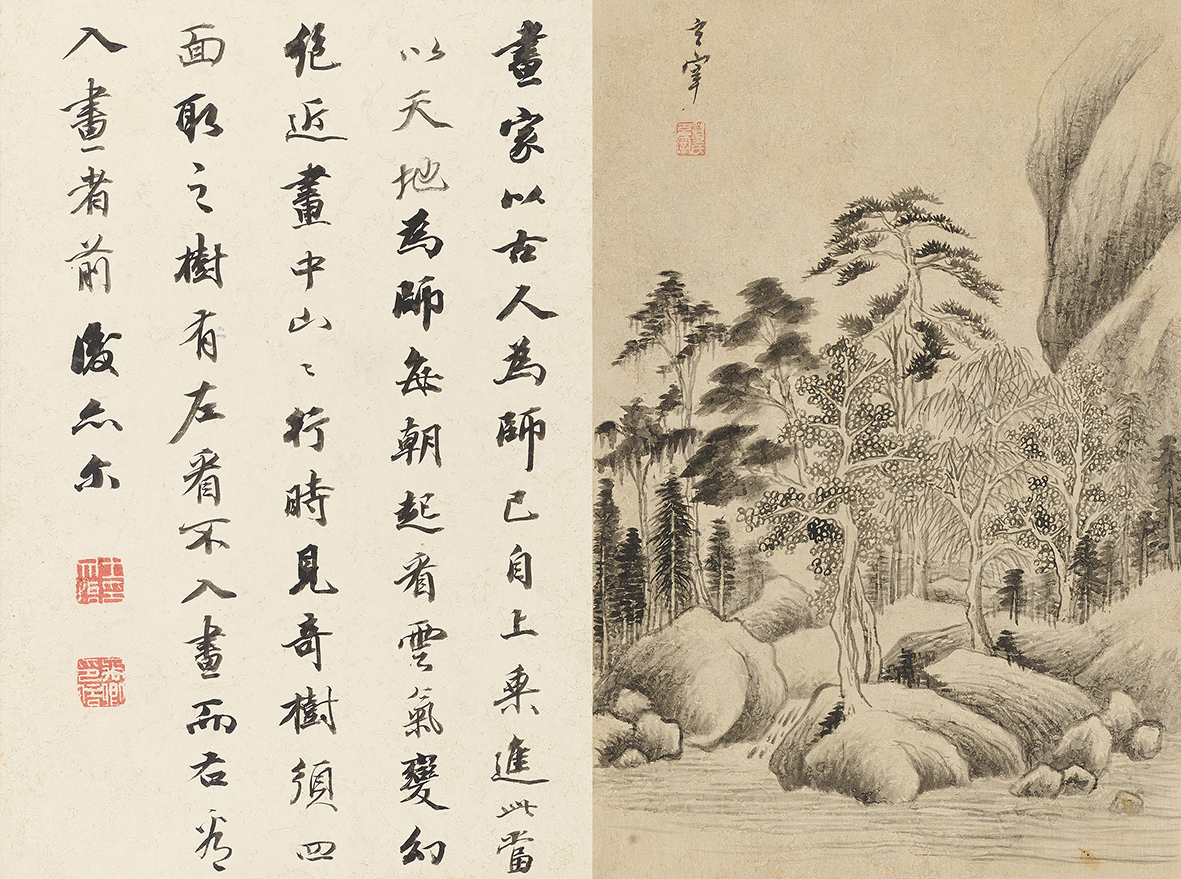 玄宰
畫家以古人為師已自上乗進此當
以天地為師每朝起看雲氣變幻
絕近畫中山〻行時見奇樹須四
面取之樹有左看不入畫而右看
入畫者前後亦尔